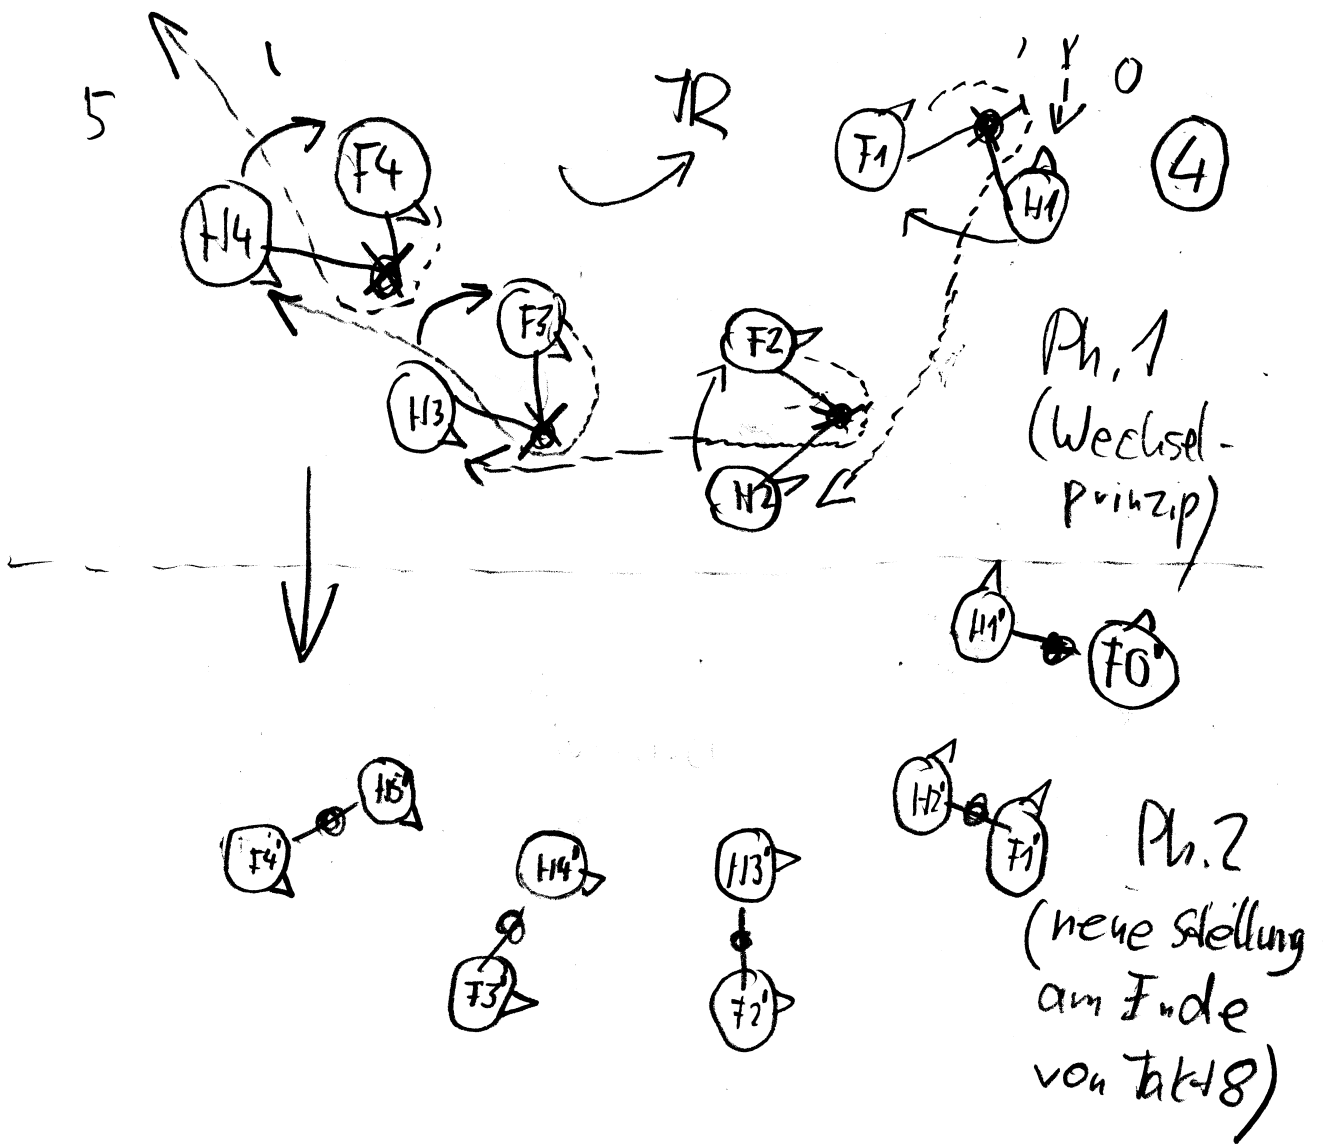 5
TR
0
4
F4
H4
F1
H1
F3
H3
F2
H2
Ph.1
(Wechsel-
prinzip)
H1'
F0'
H5'
F4'
H4'
F3'
H3'
F2'
H2'
F1'
Ph.2
(neue Stellung
am Ende
von Takt 8)